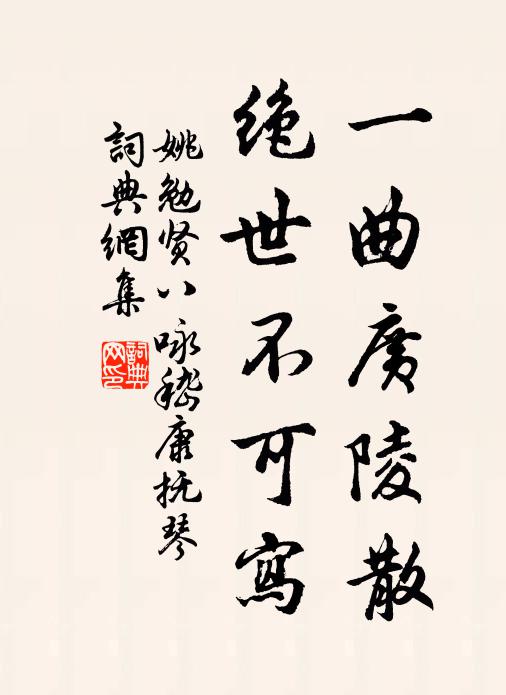 一曲廣陵散
絶世不可寫
姚勉賢八咏嵇康抚琴
詞典網集
詞典网印